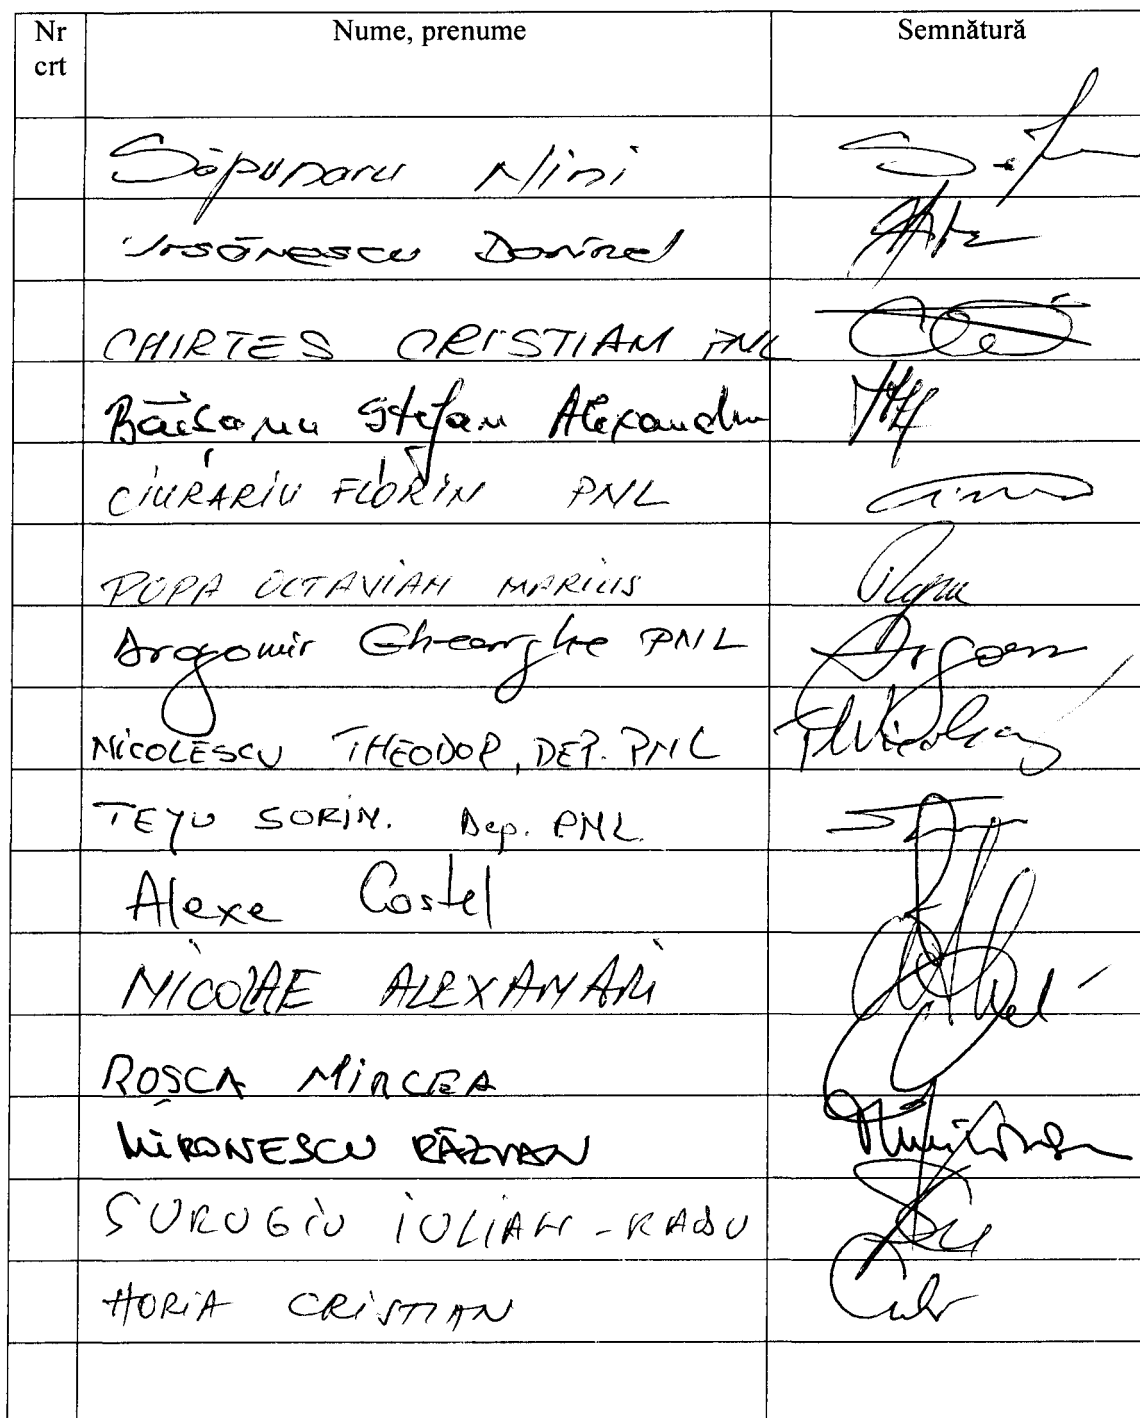 Nr crt Nume, prenume Semnătură
Săpunaru Nini
Ursărescu Dorinel
CHIRTES CRISTIAN PNL
Băișanu Ștefan Alexandru
CIURARIU FLORIN PNL
POPA OCTAVIAN MARIUS
Dragomir Gheorghe PNL
NICOLESCU THEODOR, DEP. PNL
TEJU SORIN. Dep. PNL
Alexe Costel
NICOLAE ALEXANDRI
ROȘCA MIRCEA
MIRONESCU RĂZVAN
SURUGIU IULIAN-RADU
HORIA CRISTIAN